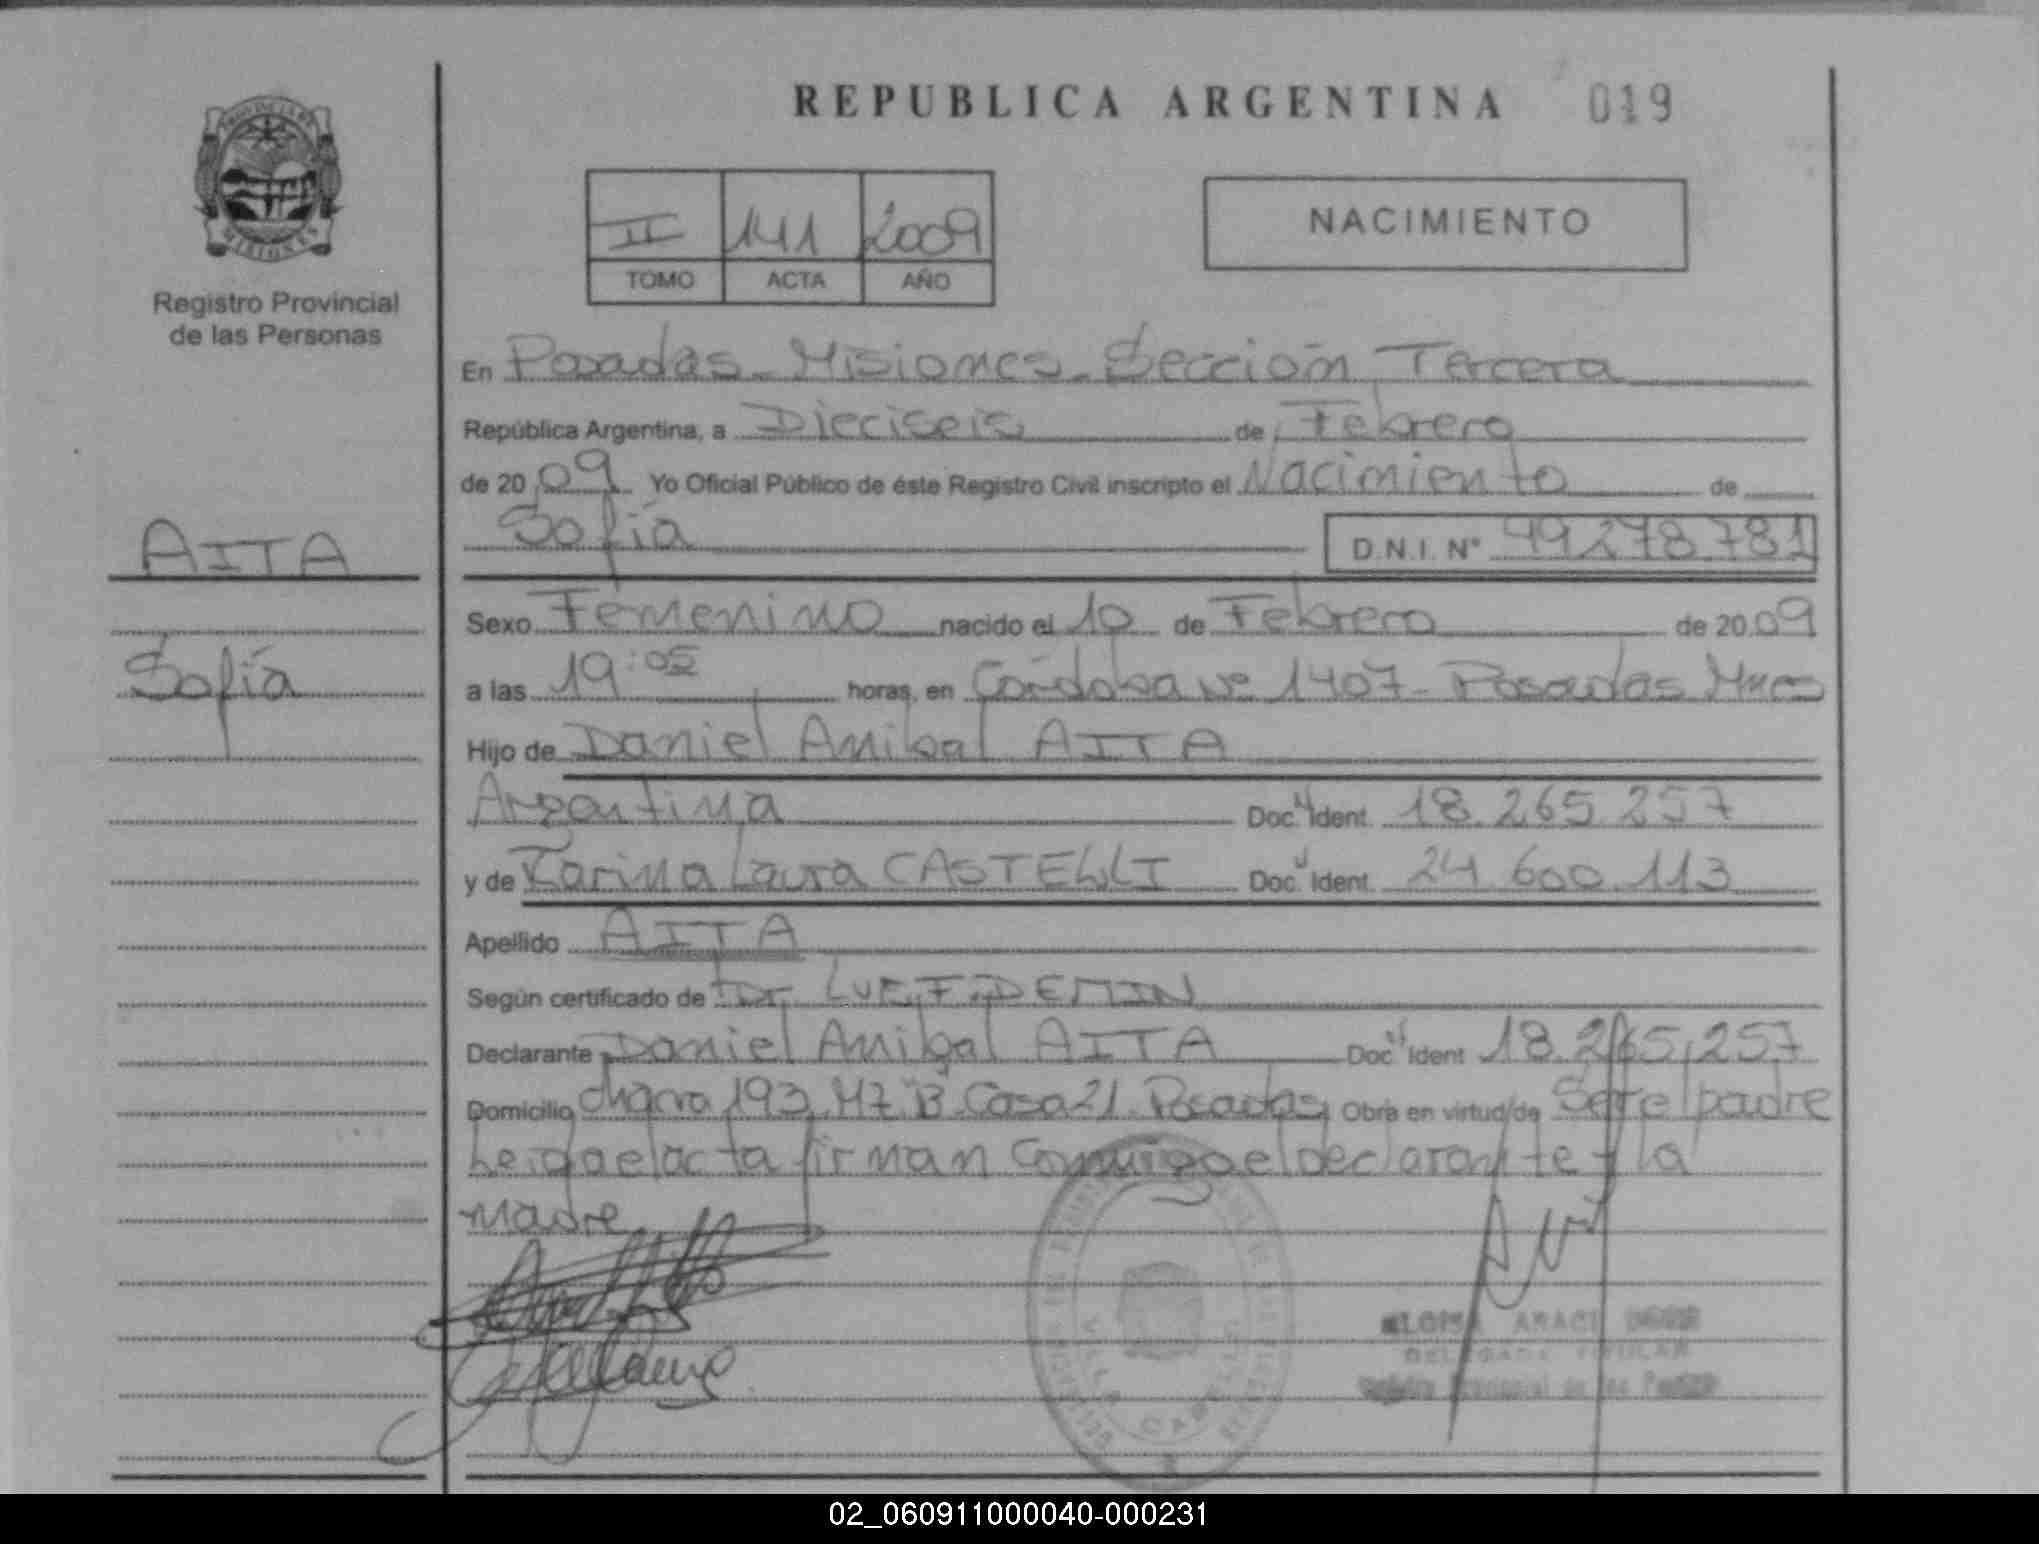 REPUBLICA ARGENTINA 019
PROVINCIA DE
MISIONES
Registro Provincial
de las Personas
II 141 2009
TOMO ACTA AÑO
NACIMIENTO
En Posadas - Misiones - Sección Tercera
República Argentina, a Dieciseis de Febrero
de 20 09 Yo Oficial Público de éste Registro Civil inscripto el Nacimiento de
Sofía D.N.I. N° 49278781
AITA
Sofía
Sexo Femenino nacido el 10 de Febrero de 20 09
a las 19:05 horas, en Córdoba N° 1407 - Posadas Mnes
Hijo de Daniel Anibal AITA
Argentina Doc. Ident. 18.265.257
y de Karina Laura CASTELLI Doc. Ident. 24.600.113
Apellido AITA
Según certificado de Dr.
Declarante Daniel Anibal AITA Doc. Ident 18.265.257
Domicilio chacra 193 Mz "B" Casa 21 Posadas Obra en virtud de Ser el padre
Leida el acta firman Conmigo el declarante y la
madre
VILLA CABELLO
ARACI
DELEGADA TITULAR
Registro Provincial de las Personas
02_060911000040-000231